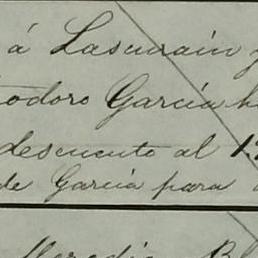 á Lascurain y
odoro García h
descuento al 1
de García para
Heredia